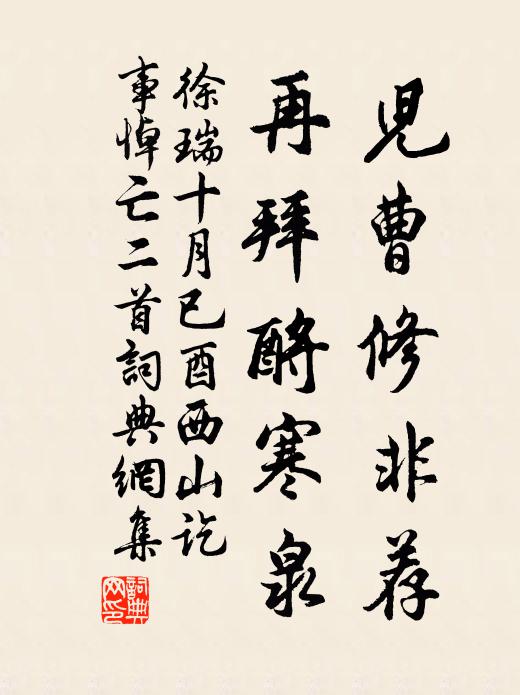 兒曹修非荐
再拜酹寒泉
徐瑞十月已酉西山訖
事悼亡二首詞典網集
詞典
网印